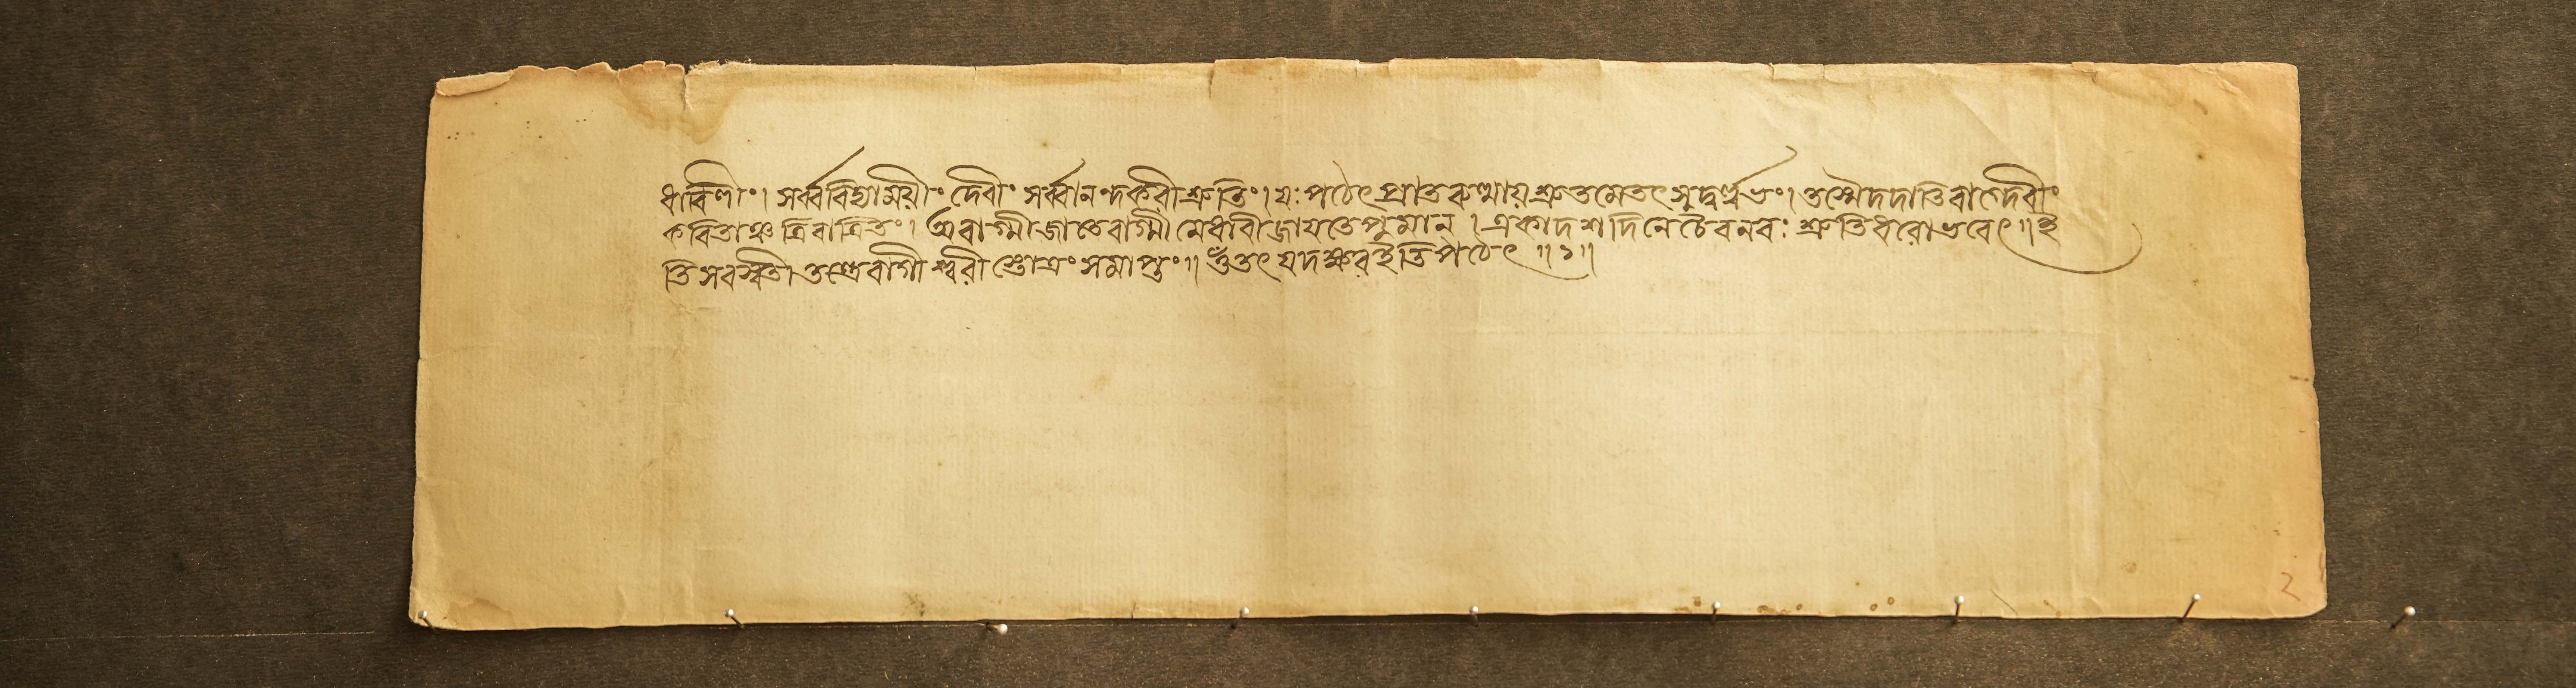 ধারিণীং। সর্ব্ববিদ্যাময়ীং দেবীং সর্ব্বানন্দকরী শ্রুতিং। যঃ পঠেৎ প্রাতরুত্থায় শ্রুতমেতৎ সুদুর্ল্লভং। তস্মৈ দদাতি বাগ্দেবীং
কবিতাঞ্চ ত্রিরাত্রিতঃ। অবাগ্মী জাতে বাগ্মী মেধাবী জায়তে পুমান। একাদশ দিনে চৈব নরঃ শ্রুতিধরো ভবেৎ॥ ই
তি সরস্বতী তন্ত্রে বাগীশ্বরী স্তোত্রং সমাপ্তং॥ ওঁ তৎ যদক্ষর ইতি পঠেৎ ॥১॥
2